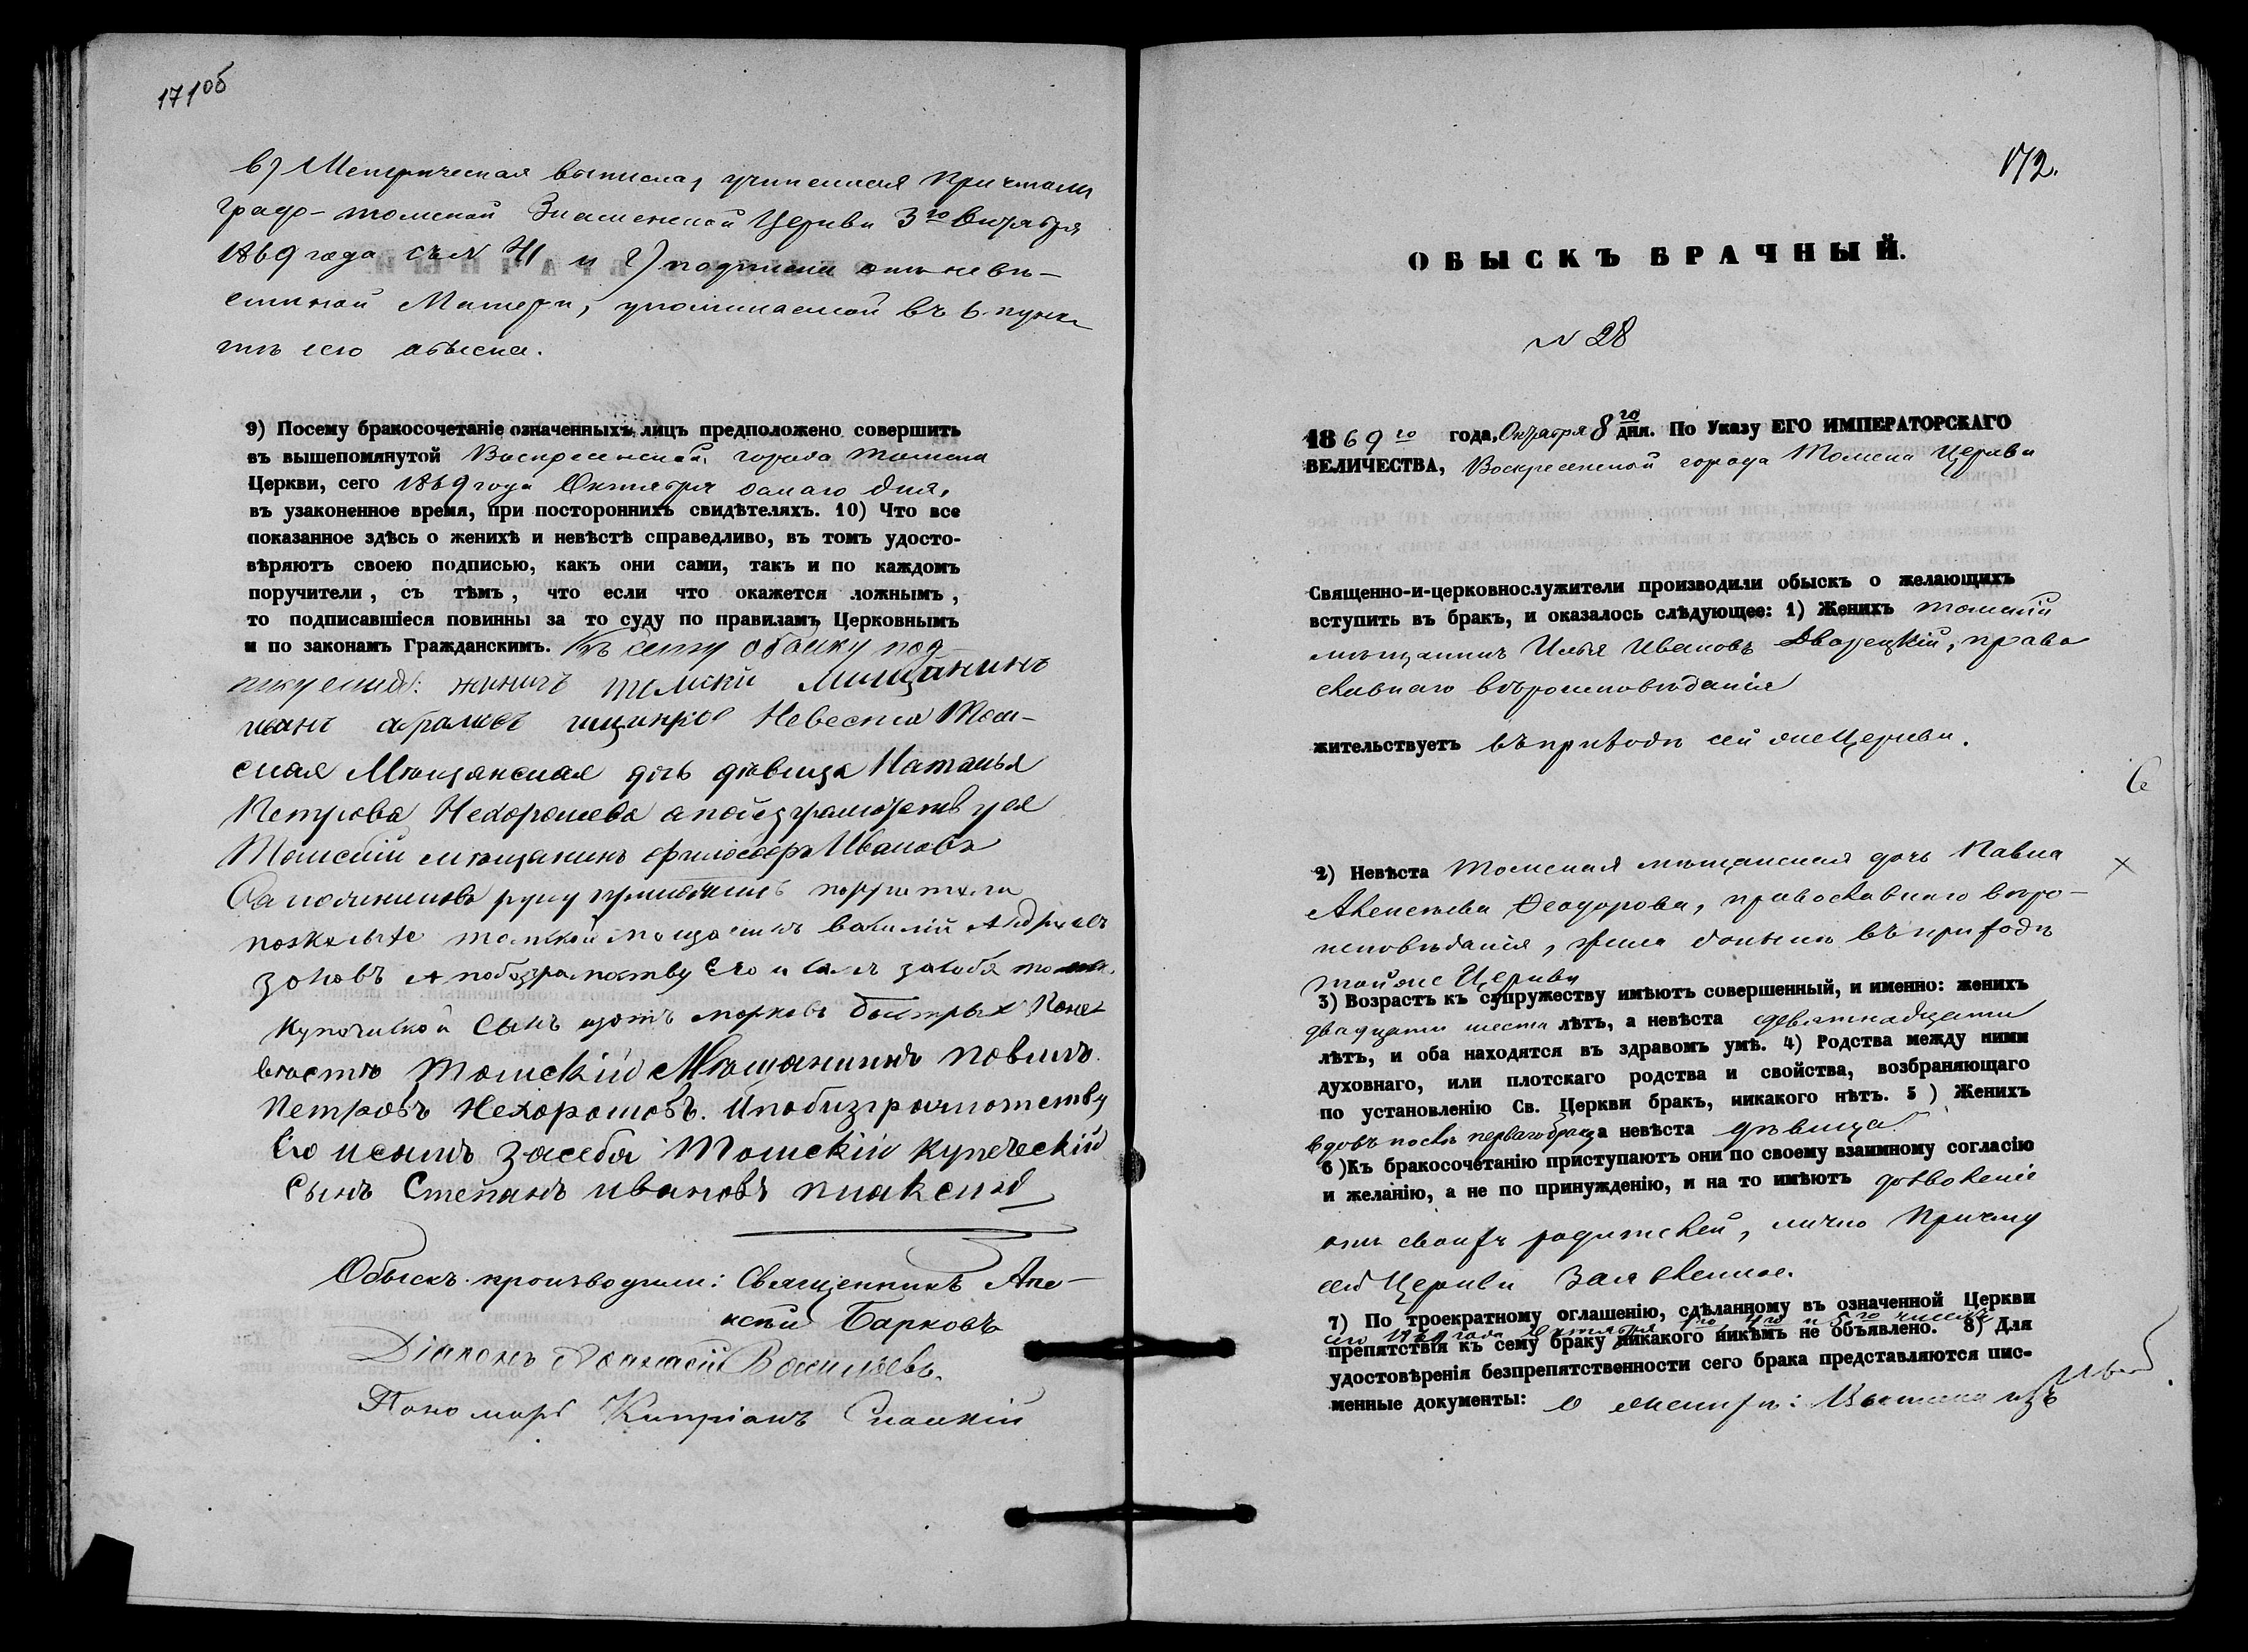 171об
в) Метрическая выписка, учиненная Причтомъ
градо-томской Знаменской Церкви 3го Октября
1869 года съ № 41 и г) подписка отъ невѣ-
стиной Матери, упоминаемой въ 6. пунк-
тѣ сего обыска.
9) Посему бракосочетаніе означенныхъ лицъ предположено совершить
въ вышепомянутой Воскресенской, города Томска
Церкви, сего 1869 года Октября дня,
въ узаконенное время, при постороннихъ свидѣтеляхъ. 10) Что все
показанное здѣсь о женихѣ и невѣстѣ справедливо, въ томъ удосто-
вѣряютъ своею подписью, какъ они сами, такъ и по каждомъ
поручители, съ тѣмъ, что если что окажется ложнымъ,
то подписавшіеся повинны за то суду по правиламъ Церковнымъ
и по законамъ Гражданскимъ. Къ сему обыску под
женихъ томски мищанинъ
иванъ Невеста Том-
ская Мѣщанская дочь дѣвица Наталья
Петрова Нехорошева
Томскій мѣщанинъ Ивановъ
руку
томской
зоновъ его и за себя
сынъ быстрыхъ По не
вѣстѣ Томскій Мѣщанинъ
Петровъ Нехорошовъ. И побизграмотству
Его исамъ засебя Томскій купеческій
Сынъ Степанъ ивановъ
Обыскъ производили: Священникъ Але-
ксѣй Барковъ
Діаконъ Васильевъ.
Пономарь Кипріанъ
172.
ОБЫСКЪ БРАЧНЫЙ.
№ 28
1869го года, Октября 8го дня. По Указу ЕГО ИМПЕРАТОРСКАГО
ВЕЛИЧЕСТВА, Воскресенской города Томска Церкви
Священно-и-церковнослужители производили обыскъ о желающихъ
вступить въ бракъ, и оказалось слѣдующее: 1) Женихъ томскій
мѣщанинъ Илья Ивановъ Дворецкій, право
славнаго вѣроисповѣданія
жительствуетъ въ приходѣ сей же Церкви.
2) Невѣста Томская мѣщанская дочь Павла
Алексѣева Ѳеодорова, православнаго вѣро-
исповѣданія, жила донынѣ въ приходѣ
той же Церкви
3) Возрастъ къ супружеству имѣютъ совершенный, и именно: женихъ
двадцати шести лѣтъ, а невѣста девятнадцати
лѣтъ, и оба находятся въ здравомъ умѣ. 4) Родства между ними
духовнаго, или плотскаго родства и свойства, возбраняющаго
по установленію Св. Церкви бракъ, никакого нѣтъ. 5) Женихъ
вдовъ послѣ перваго брака, а невѣста дѣвица.
6) Къ бракосочетанію приступаютъ они по своему взаимному согласію
и желанію, а не по принужденію, и на то имѣютъ дозволеніе
отъ своихъ родителей, лично Причту
сей Церкви заявленное.
7) По троекратному оглашенію, сдѣланному въ означенной Церкви
сего 1869 года Октября и 5го чиселъ
препятствія къ сему браку никакого никѣмъ не объявлено. 8) Для
удостовѣренія безпрепятственности сего брака представляются пис-
менные документы: О женихѣ: Выписка изъ